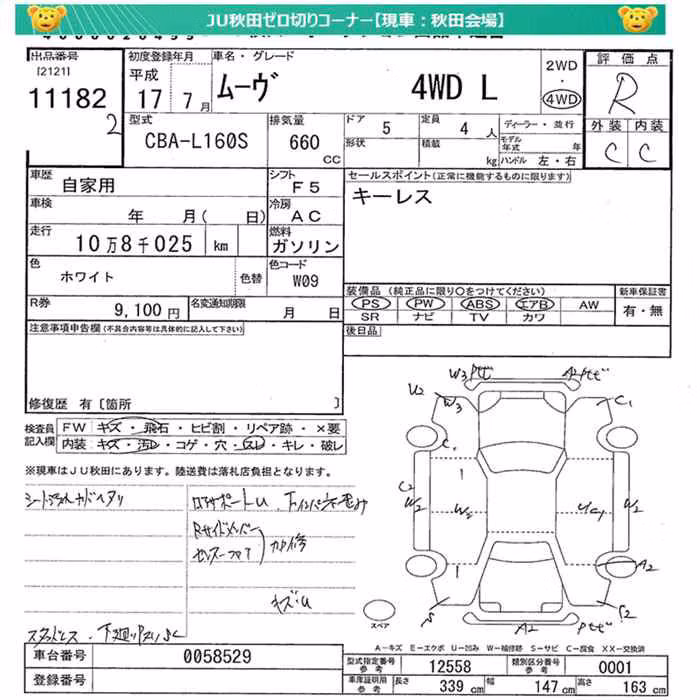 JU秋田ゼロ切りコーナー【現車：秋田会場】
出品番号 初度登録年月 車名・グレード 2WD・4WD 評価点
[2121]
11182
2
平成 17年 7月 ムーヴ 4WD L R
型式 排気量 ドア 5 定員 4人 ディーラー・並行 外装 内装
CBA-L160S 660 CC 形状 積載 kg モデル年式 年 ハンドル 左・右 C C
車歴 自家用 シフト F5 セールスポイント(正常に機能するものに限ります)
車検 年 月( 日) 冷房 AC キーレス
走行 10万8千025 km 燃料 ガソリン
色 ホワイト 色替 色コード W09
装備品 (純正品に限り○をつけてください) 新車保証書
R券 9,100円 名変通知期限 月 日 PS PW ABS エアB AW 有・無
SR ナビ TV カワ
注意事項申告欄(不具合内容等は具体的に記入して下さい) 後日品
修復歴 有〔箇所 〕
検査員記入欄 FW キズ・飛石・ヒビ割・リペア跡・×要
内装 キズ・汚レ・コゲ・穴・スレ・キレ・破レ
※現車はJU秋田にあります。陸送費は落札店負担となります。
U2 W3 W3 C1
C1
C2 W2 W2 W2
A2
S A2 S2
キズ・U
スペア
A-キズ E-エクボ U-凹み W-補修跡 S-サビ C-腐食 XX-交換済
車台番号 0058529
登録番号
型式指定番号 参考 12558 類別区分番号 参考 0001
車庫証明用 参考 長さ 339 cm 幅 147 cm 高さ 163 cm